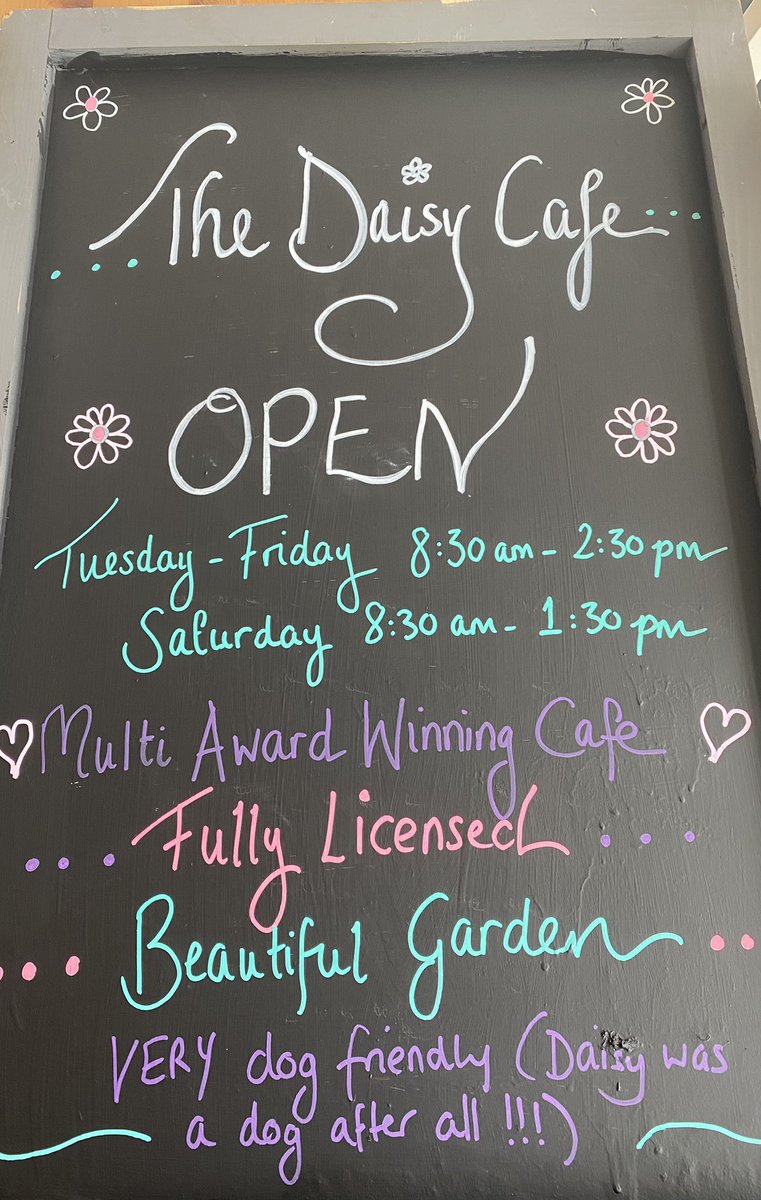 The Daisy Cafe
OPEN
Tuesday - Friday 8:30 am - 2:30 pm
Saturday 8:30 am - 1:30 pm
Multi Award Winning Cafe
Fully Licensed
Beautiful Garden
VERY dog friendly (Daisy was
a dog after all !!!)